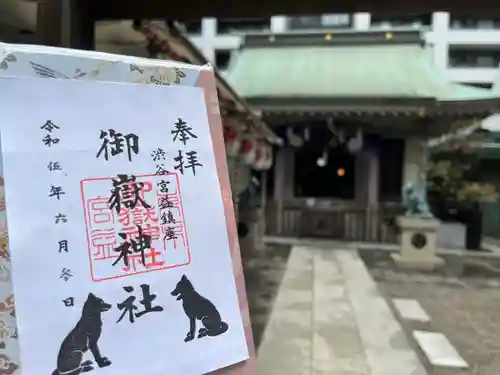 奉拝
渋谷宮益鎮座
御嶽神社
令和伍年六月参日